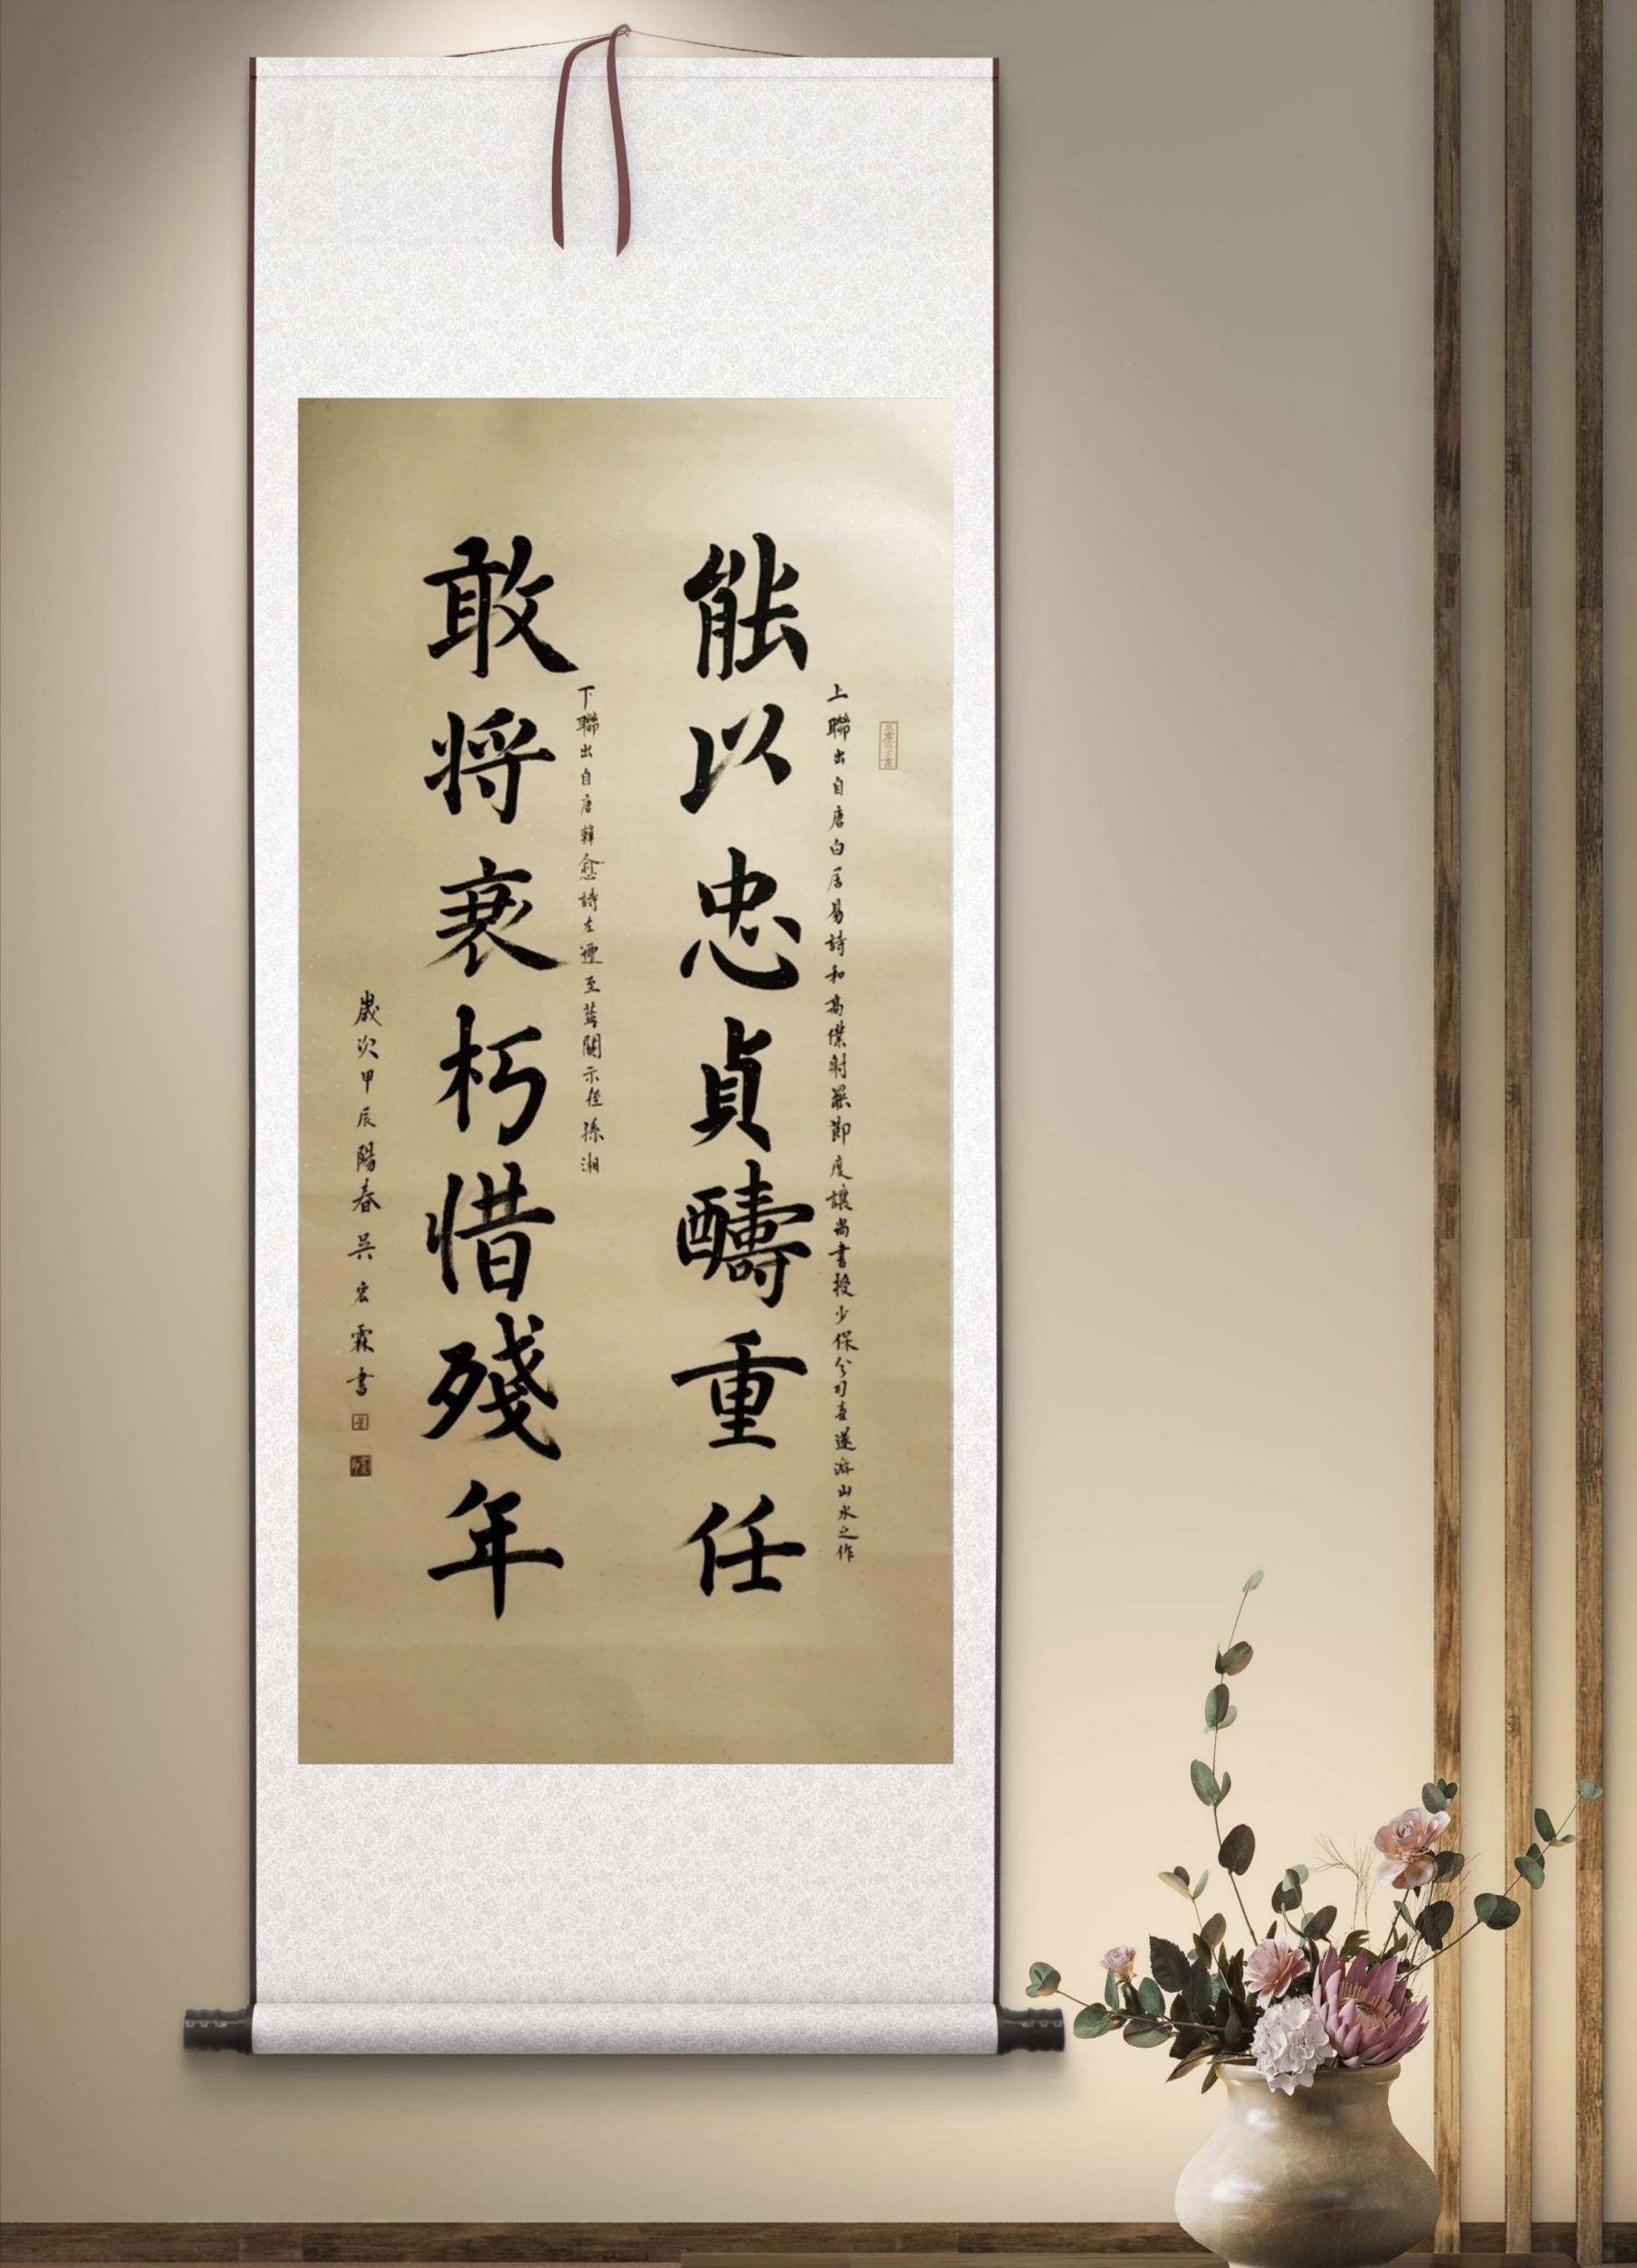 上聯出自唐白居易詩和高僕射罷節度讓尚書授少保分司喜遂游山水之作
能以忠貞醻重任
下聯出自唐韓愈詩左遷至藍關示侄孫湘
敢將衰朽惜殘年
歲次甲辰陽春吳宏霖書